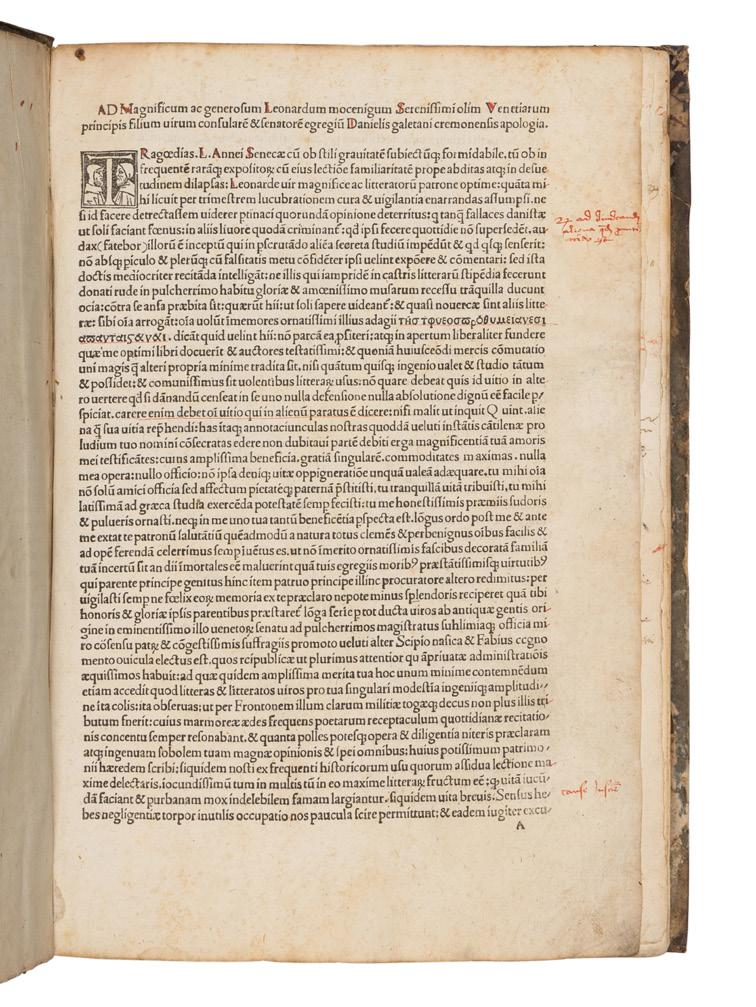 AD Magnificum ac generosum Leonardum mocenigum Serenissimi olim Venetiarum
principis filium uirum consularē & senatorē egregiū Danielis gaietani cremonensis apologia.
TRagœdias. L. Annei Senecæ cū ob stili grauitatē subiectūq; formidabile, tū ob in
frequentē rarāq; expositorꝝ cū eius lectiōe familiaritatē prope abditas atq; in desue
tudinem dilapsas: Leonarde uir magnifice ac litteratorū patrone optime: quāta mi-
hi licuit per trimestrem lucubrationem cura & uigilantia enarrandas assumpsi. ne
si id facere detrectassem uiderer ptinaci quorundā opinione deterritus: q tanq̄ fallaces danistæ
ut soli faciant fœnus: in aliis liuore quodā criminant: qd ipsi fecere quottidie nō supersedēt, au-
dax (fatebor) illorū ē inceptū qui in pscrutādo aliēa secreta studiū impēdūt & qd qsq; senserit:
nō absq; piculo & plerūq; cū falsitatis metu cōfidēter ipsi uelint expōere & cōmentari: sed ista
doctis mediocriter recitāda intelligāt: ne illis qui iampridē in castris litterarū stipēdia fecerunt
donati rude in pulcherrimo habitu gloriæ & amœnissimo musarum recessu trāquilla ducunt
ocia: cōtra se ansa præbita sit: quærūt hii: ut soli sapere uideant: & quasi nouercæ sint aliis litte-
ræ: sibi oīa arrogāt: oīa uolūt īmemores ornatissimi illius adagii
dicāt quid uelint hii: nō parcā ea pfiteri: atq; in apertum liberaliter fundere
quæ me optimi libri docuerīt & auctores testatissimi: & quoniā huiuscēdi mercis cōmutatio
uni magis q̄ alteri propria minime tradita sit. nisi quātum quisq; ingenio ualet & studio tātum
& possidet: & comunissimus sit uolentibus litterarꝝ usus: nō quare debeat quis id uitio in alte-
ro uertere qd si dānandū censeat in se uno nulla defensione nulla absolutione dignū eē facile p/
spiciat. carere enim debet oī uitio qui in alienū paratus ē dicere: nisi malit ut inquit Quint. alie
na q̄ sua uitia rephendi: has itaq; annotaciunculas nostras quodda ueluti instātis cātilenæ pro
ludium tuo nomini cōsecratas edere non dubitaui partē debiti erga magnificentiā tuā amoris
mei testificātes: cuius amplissima beneficia. gratiā singularē. commoditates maximas. nulla
mea opera: nullo officio: nō ipsa deniq; uitæ oppigneratiōe unquā ualeā adæquare. tu mihi oīa
nō solū amici officia sed affectum pietatēq; paternā pstitisti. tu tranquillā uitā tribuisti. tu mihi
latissimā ad græca studia exercēda potestatē semp fecisti: tu me honestissimis præmiis sudoris
& pulueris ornasti. neq; in me uno tua tantū beneficētia pspecta est. lōgus ordo post me & ante
me extat te patronū salutātiū quēadmodū a natura totus clemēs & perbenignus oībus facilis &
ad opē ferendā celerrimus semp īuētus es. ut nō īmerito ornatissimis fascibus decoratā familiā
tuā incertū sit an dii īmortales eē maluerint quā tuis egregiis morib9 præstātissimisq; uirtutib9
qui parente principe genitus hinc item patruo principe illinc procuratore altero redimitus: per
uigilasti semp ne fœlix eorꝝ memoria ex te præclaro nepote minus splendoris reciperet quā tibi
honoris & gloriæ ipsis parentibus præstaret lōga serie ptot ducta uiros ab antiquæ gentis ori-
gine in eminentissimo illo uenetorꝝ senatu ad pulcherrimos magistratus suhlimiaq; officia mi-
ro cōsensu patrꝝ & cōgestissimis suffragiis promoto ueluti alter Scipio nasica & Fabius cogno
mento ouicula electus est. quos reipublicæ ut plurimus attentior quā priuatæ administratiōis
æquissimos habuit: ad quæ quidem amplissima merita tua hoc unum minime contemnēdum
etiam accedit quod litteras & litteratos uiros pro tua singulari modestia ingeniiq; amplitudi//
ne ita colis: ita obseruas: ut per Frontonem illum clarum militiæ togæq; decus non plus illis tri
butum fuerit: cuius marmoreæ ædes frequens poetarum receptaculum quottidianæ recitatio-
nis concentu semper resonabant. & quanta polles potesq; opera & diligentia niteris præclaram
atq; ingenuam sobolem tuam magnæ opinionis & spei omnibus: huius potissimum patrimo-
nii hæredem scribi: siquidem nosti ex frequenti historicorum usu quorum assidua lectione ma-
xime delectaris. iocundissimū tum in multis tū in eo maxime litterarꝝ fructum eē: q; uitā iucū-
dā faciant & purbanam mox indelebilem famam largiantur. siquidem uita breuis. Sensus he/
bes negligentiæ torpor inutilis occupatio nos paucula scire permittunt: & eadem iugiter excu-
A